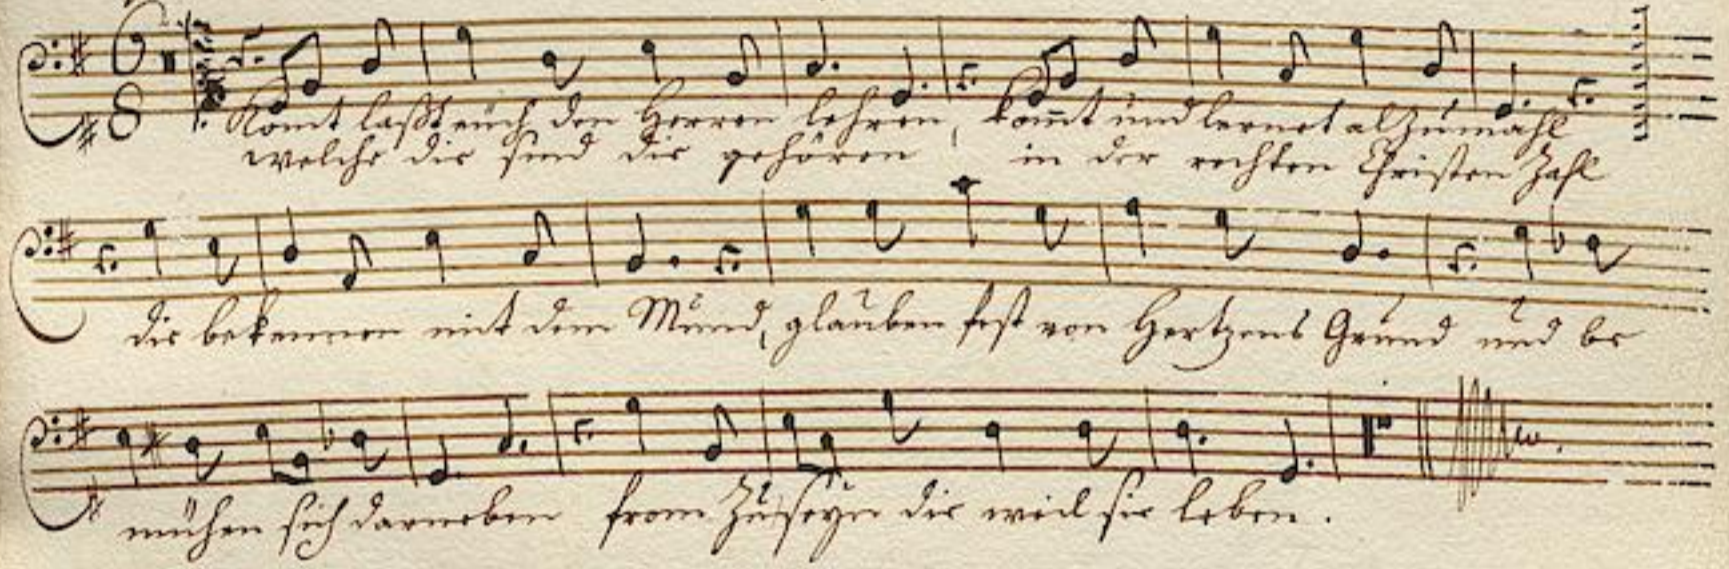 Komt laßt euch den Herren lehren, kom̄t und lernet alzumahl
welche die sind die gehören in der rechten Christen Zahl
die bekennen mit dem Mund, glauben fest von Hertzens Grund und be
mühen sich darneben from zu seyn die weil sie leben.